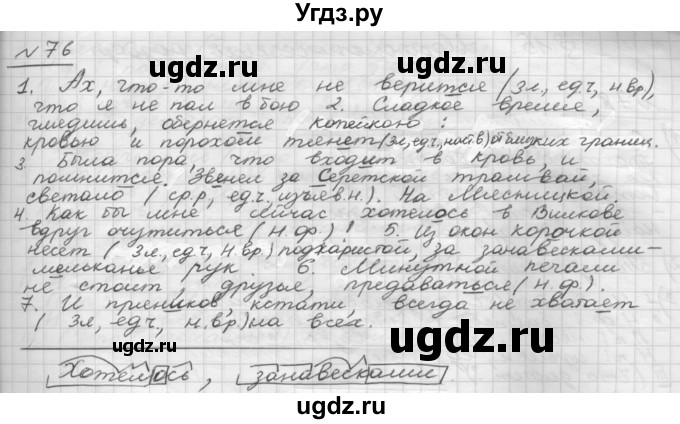 Угдз.ру
№ 76
1. Ах, что-то мне не верится (3л, ед.ч, н.вр),
что я не пал в бою 2. Сладкое время,
глядишь, обернется копейкою:
кровью и порохом тянет (3л, ед.ч, наст.в) от близких границ.
3. Была пора, что входит в кровь, и
помнится. Звенел за Серетской трамвай,
светало (ср.р, ед.ч, изъяв.н.). На Мясницкой.
4. Как бы мне сейчас хотелось в Вилкове
вдруг очутиться (н.ф.)! 5. Из окон корочкой
несет (3л, ед.ч, н.вр.) поджаристой, за занавесками -
мельканье рук. 6. Минутной печали
не стоит, друзья, предаваться (н.ф.).
7. И пряников, кстати, всегда не хватает
(3л, ед.ч, н.вр) на всех.
Хотелось, занавесками.
ugdz.ru
ugdz.ru
ugdz.ru
ugdz.ru
ugdz.ru
ugdz.ru
ugdz.ru
ugdz.ru
ugdz.ru